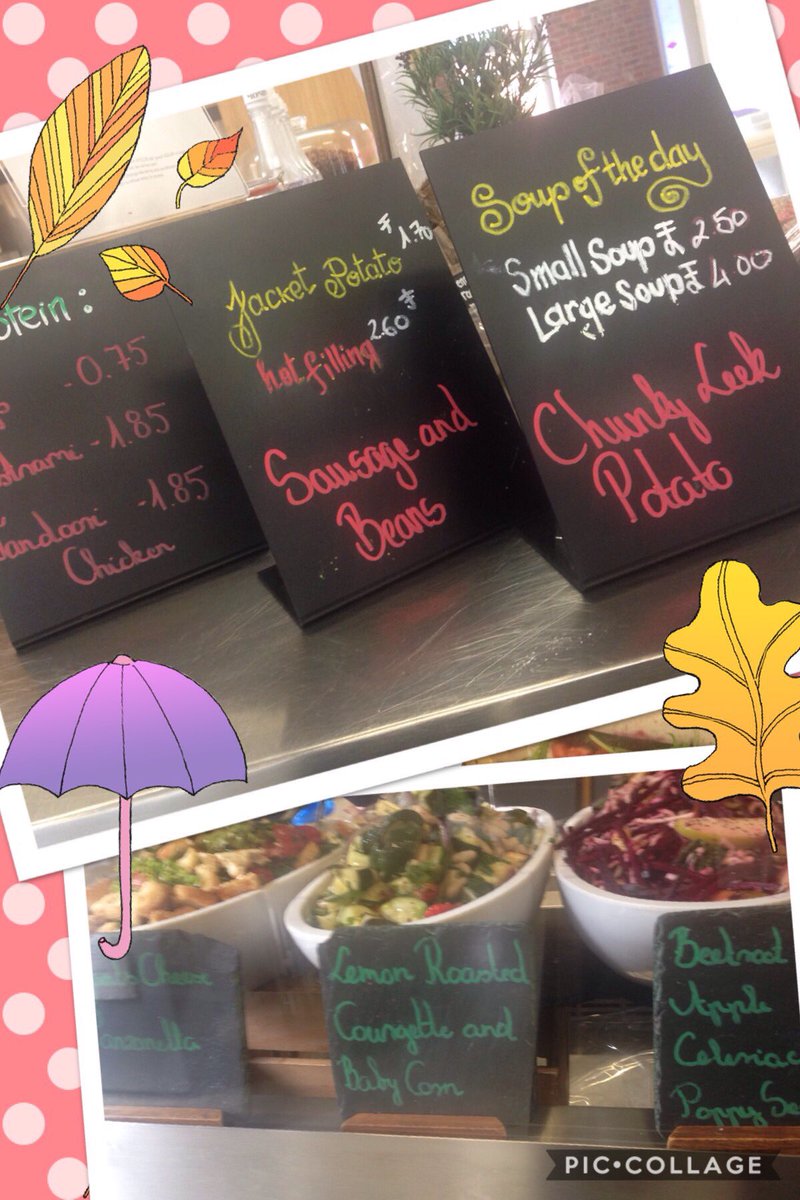 tein:
-0.75
-1.85
Tandoori -1.85
Chicken
₹ 1.70
Jacket Potato
2.60 ₹
hot filling
Sausage and
Beans
Soup of the day
Small Soup ₹ 2.50
Large Soup ₹ 4.00
Chunky Leek
Potato
Cheese
Lemon Roasted
Courgette and
Baby Corn
Beetroot
Apple
Celeriac
Poppy Se
PIC•COLLAGE